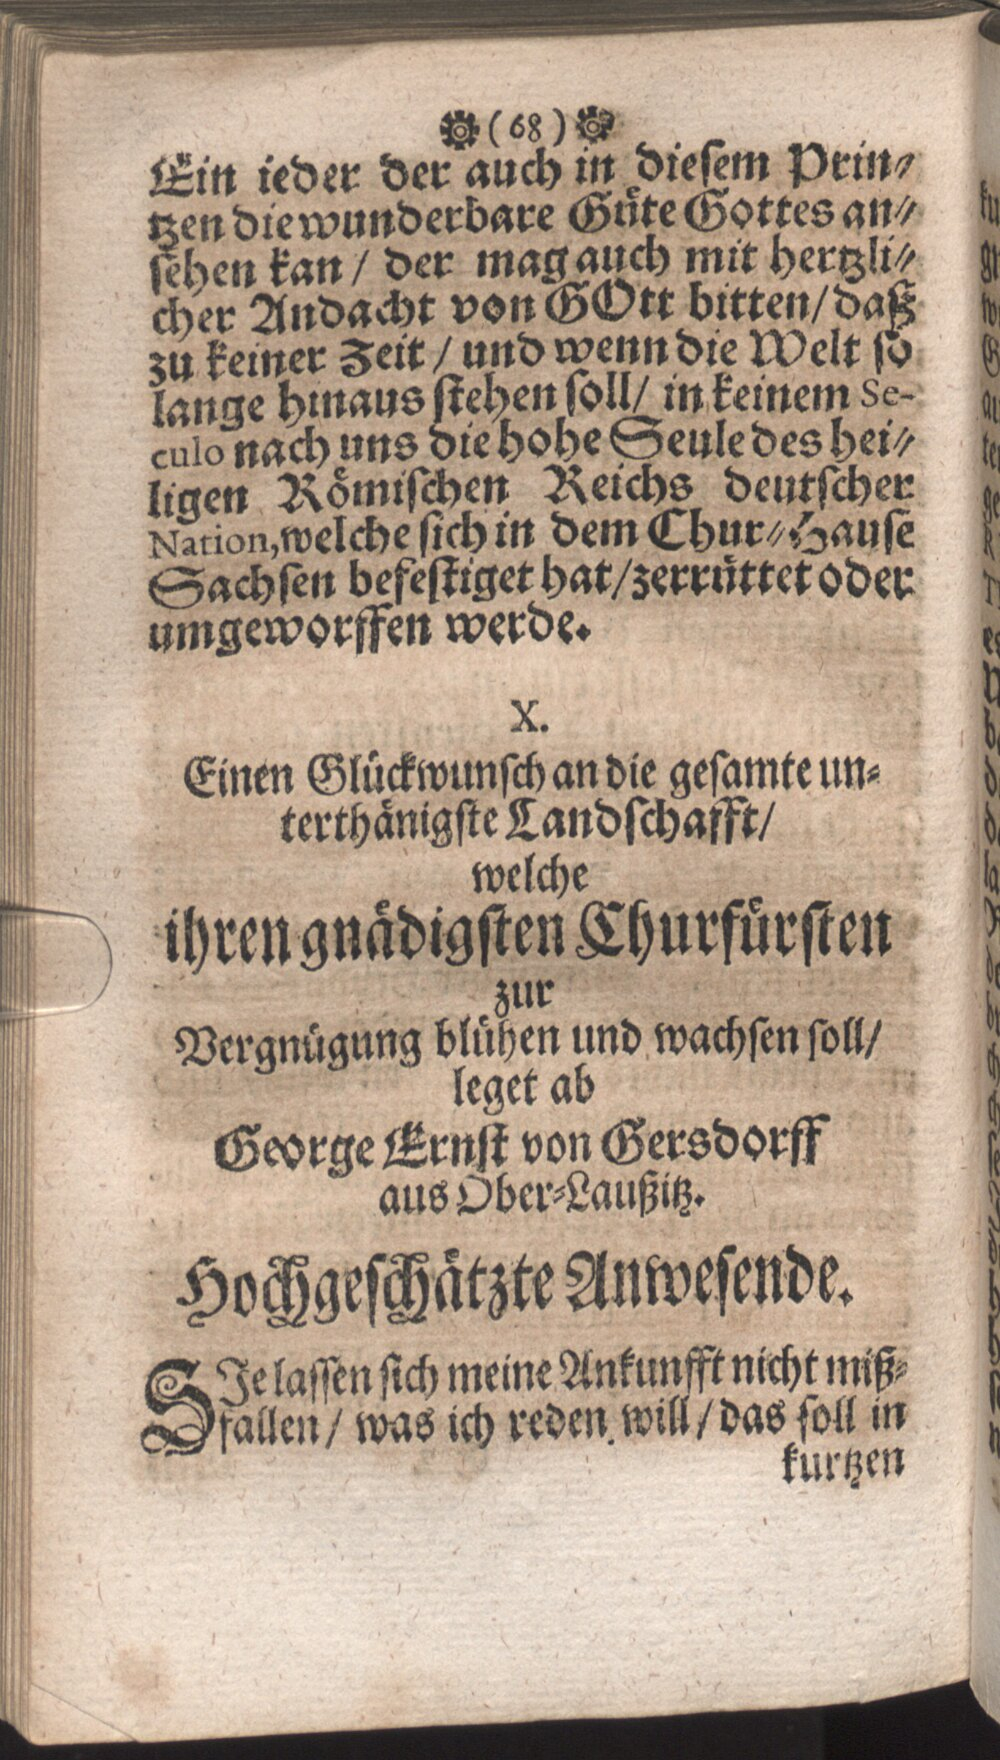 (68)
Ein ieder der auch in diesem Prin-
tzen die wunderbare Güte Gottes an-
sehen kan / der mag auch mit hertzli-
cher Andacht von GOtt bitten / daß
zu keiner Zeit / und wenn die Welt so
lange hinaus stehen soll / in keinem Se-
culo nach uns die hohe Seule des hei-
ligen Römischen Reichs deutscher
Nation, welche sich in dem Chur-Hause
Sachsen befestiget hat / zerrüttet oder
umgeworffen werde.
X.
Einen Glückwunsch an die gesamte un-
terthänigste Landschafft /
welche
ihren gnädigsten Churfürsten
zur
Vergnügung blühen und wachsen soll /
leget ab
George Ernst von Gersdorff
aus Ober-Laußitz.
Hochgeschätzte Anwesende.
SIe lassen sich meine Ankunfft nicht miß-
fallen / was ich reden will / das soll in
kurtzen